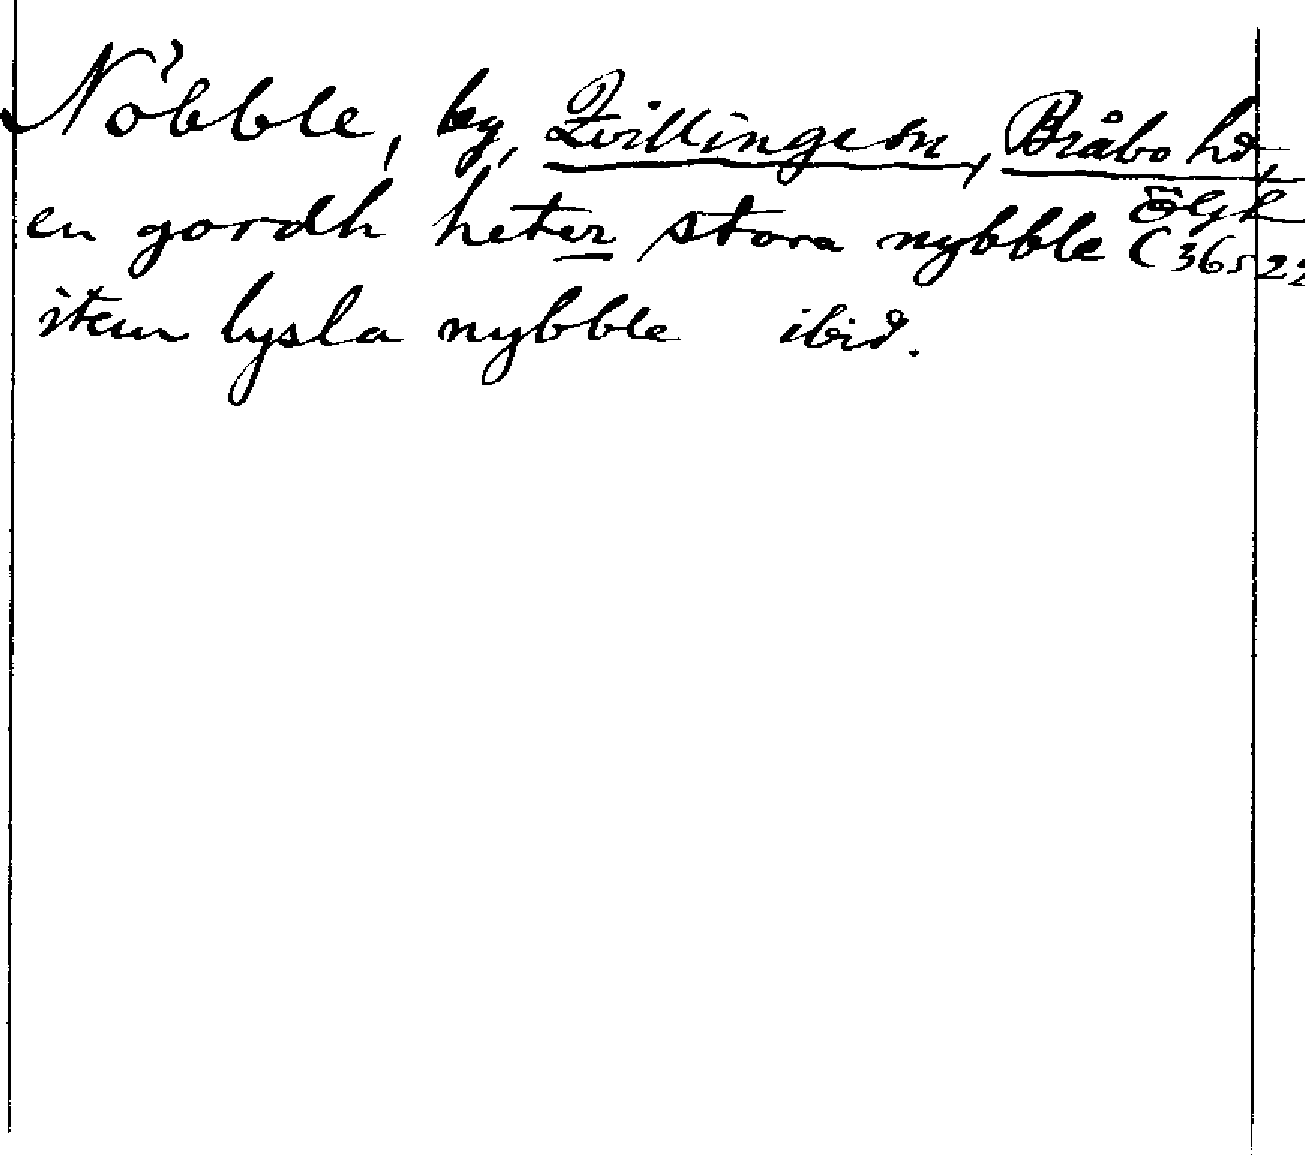 Nöbble, by, Kvillinge sn, Bråbo hd,
en gordh heter stora nybble ÖGR C 365 22
item lysla nybble ibid.